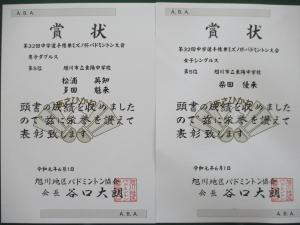 A.B.A.
賞状
第32回中学選手権兼ミズノ杯バドミントン大会
男子ダブルス
第5位 旭川市立東陽中学校
松浦 英知
多田 魁来
頭書の成績を収めました
ので茲に栄誉を讃えて
表彰致します
令和元年6月1日
旭川地区バドミントン協会
会長 谷口大朗
A.B.A.
A.B.A.
賞状
第32回中学選手権兼ミズノ杯バドミントン大会
女子シングルス
第5位 旭川市立東陽中学校
柴田 優来
頭書の成績を収めました
ので茲に栄誉を讃えて
表彰致します
令和元年6月1日
旭川地区バドミントン協会
会長 谷口大朗
A.B.A.